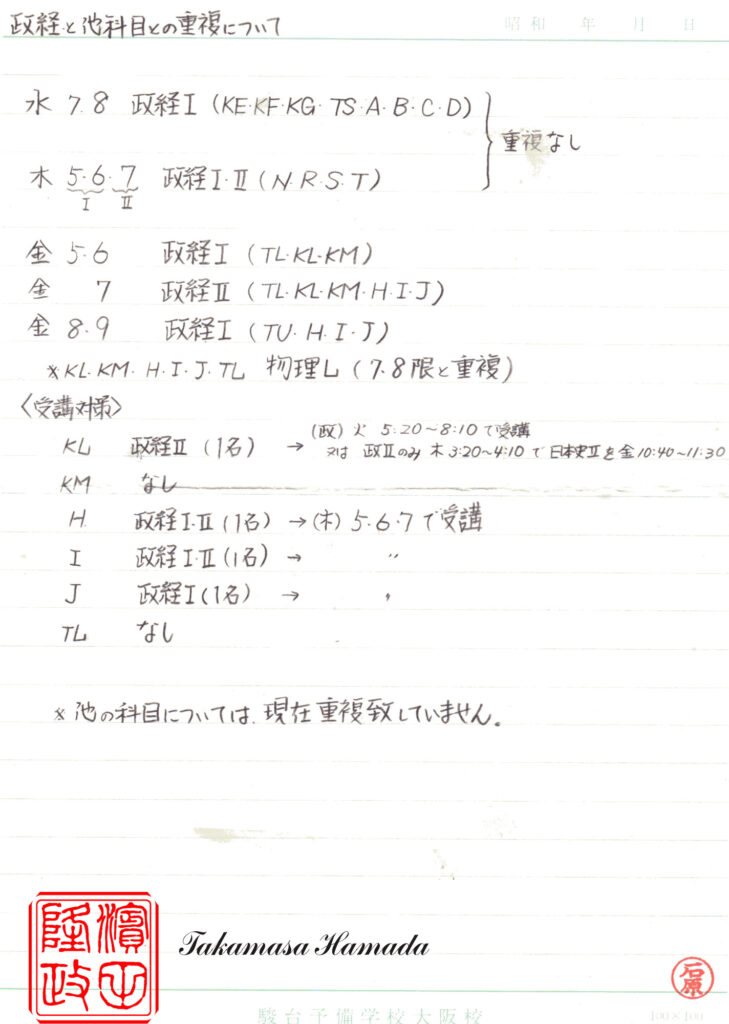 政経と池科目との重複について
昭和 年 月 日
水 7.8 政経I (KE・KF・KG・TS・A・B・C・D)
重複なし
木 5・6・7 政経I・II (N・R・S・T)
I II
金 5・6 政経I (TL・KL・KM)
金 7 政経II (TL・KL・KM・H・I・J)
金 8・9 政経I (TU・H・I・J)
※KL・KM・H・I・J・TL 物理L (7.8限と重複)
〈受講対策〉
KL 政経II (1名) → (政) 火 5:20〜8:10で受講
又は 政IIのみ 木 3:20〜4:10で 日本史IIを金10:40〜11:30
KM なし
H 政経I・II (1名) → (木) 5・6・7で受講
I 政経I・II (1名) → 〃
J 政経I (1名) → 〃
TL なし
※池の科目については、現在重複致していません。
濱田隆政
Takamasa Hamada
石原
駿台予備学校大阪校
100×100